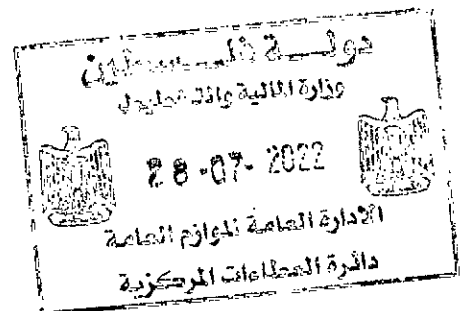 دولة فلسطين
وزارة المالية والتخطيط
28-07-2022
الادارة العامة للوازم العامة
دائرة العطاءات المركزية